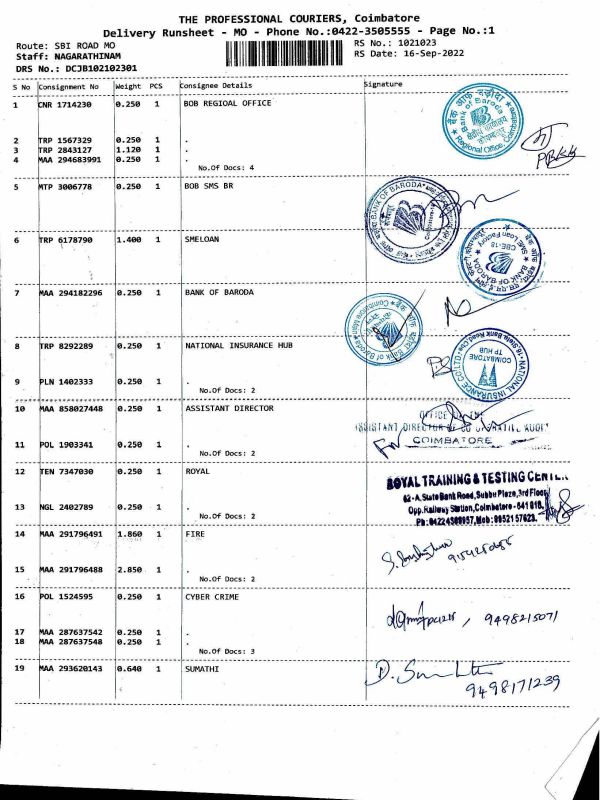 THE PROFESSIONAL COURIERS, Coimbatore
Delivery Runsheet - MO - Phone No.:0422-3505555 - Page No.:1
Route: SBI ROAD MO
RS No.: 1021023
Staff: NAGARATHINAM
RS Date: 16-Sep-2022
DRS No.: DCJB102102301
S No Consignment No Weight PCS Consignee Details Signature
1 CNR 1714230 0.250 1 BOB REGIOAL OFFICE
2 TRP 1567329 0.250 1 .
3 TRP 2843127 1.120 1 .
4 MAA 294683991 0.250 1 .
No.Of Docs: 4
बैंक ऑफ़ बड़ौदा
Bank of Baroda
Regional Office, Coimbatore
5 MTP 3006778 0.250 1 BOB SMS BR
BANK OF BARODA
6 TRP 6178790 1.400 1 SMELOAN
SME Loan Factory
CBE-18
BANK OF BARODA
7 MAA 294182296 0.250 1 BANK OF BARODA
Bank of Baroda
8 TRP 8292289 0.250 1 NATIONAL INSURANCE HUB
NATIONAL INSURANCE CO LTD
COIMBATORE
TP HUB
9 PLN 1402333 0.250 1 .
No.Of Docs: 2
10 MAA 858027448 0.250 1 ASSISTANT DIRECTOR
OFFICE
ASSISTANT DIRECTOR OF AUDIT
COIMBATORE
11 POL 1903341 0.250 1 .
No.Of Docs: 2
12 TEN 7347030 0.250 1 ROYAL
ROYAL TRAINING & TESTING
62-A, State Bank Road, Subbu Plaza, 3rd Floor
Opp. Railway Station, Coimbatore - 641 018.
13 NGL 2402789 0.250 1 .
No.Of Docs: 2
14 MAA 291796491 1.860 1 FIRE
15 MAA 291796488 2.850 1 .
No.Of Docs: 2
16 POL 1524595 0.250 1 CYBER CRIME
9498215071
17 MAA 287637542 0.250 1 .
18 MAA 287637548 0.250 1 .
No.Of Docs: 3
19 MAA 293620143 0.640 1 SUMATHI
9498171239